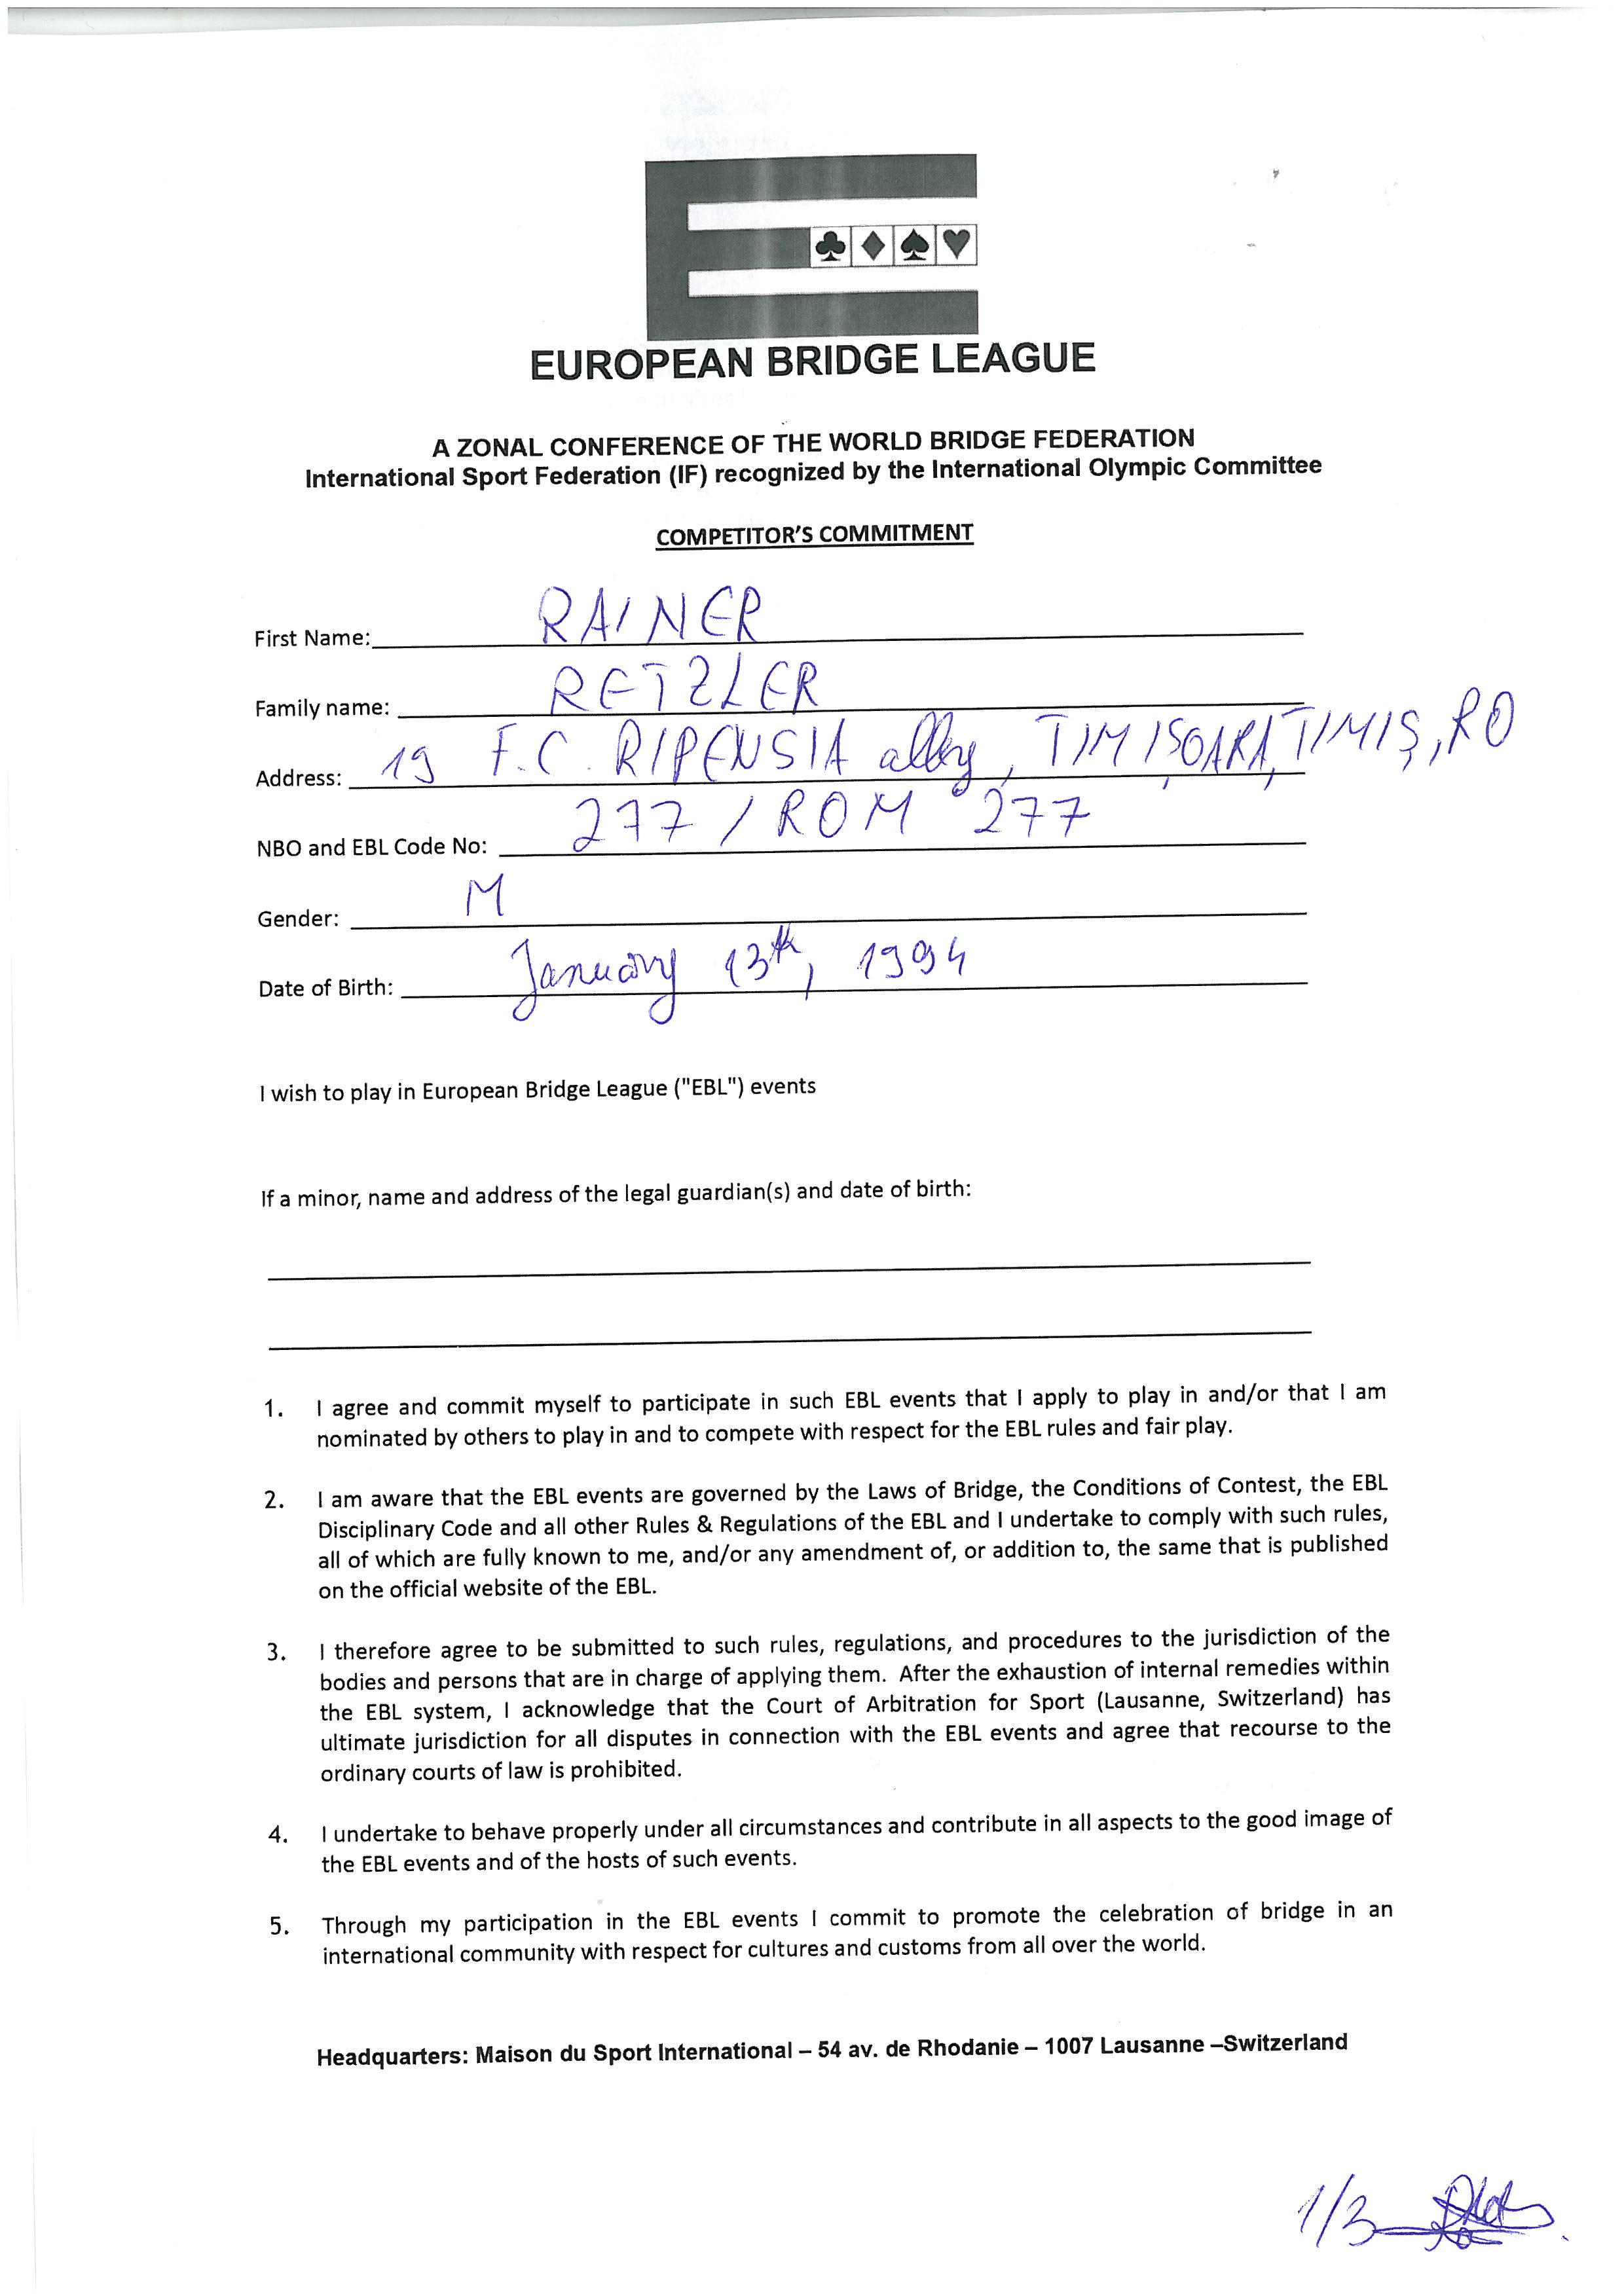 EUROPEAN BRIDGE LEAGUE
A ZONAL CONFERENCE OF THE WORLD BRIDGE FEDERATION
International Sport Federation (IF) recognized by the International Olympic Committee
COMPETITOR'S COMMITMENT
First Name: RAINER
Family name: RETZLER
Address: 19 F.C. RIPENSIA alley, TIMIȘOARA, TIMIȘ, RO
NBO and EBL Code No: 277 / ROM 277
Gender: M
Date of Birth: January 13th, 1994
I wish to play in European Bridge League ("EBL") events
If a minor, name and address of the legal guardian(s) and date of birth:
1. I agree and commit myself to participate in such EBL events that I apply to play in and/or that I am
nominated by others to play in and to compete with respect for the EBL rules and fair play.
2. I am aware that the EBL events are governed by the Laws of Bridge, the Conditions of Contest, the EBL
Disciplinary Code and all other Rules & Regulations of the EBL and I undertake to comply with such rules,
all of which are fully known to me, and/or any amendment of, or addition to, the same that is published
on the official website of the EBL.
3. I therefore agree to be submitted to such rules, regulations, and procedures to the jurisdiction of the
bodies and persons that are in charge of applying them. After the exhaustion of internal remedies within
the EBL system, I acknowledge that the Court of Arbitration for Sport (Lausanne, Switzerland) has
ultimate jurisdiction for all disputes in connection with the EBL events and agree that recourse to the
ordinary courts of law is prohibited.
4. I undertake to behave properly under all circumstances and contribute in all aspects to the good image of
the EBL events and of the hosts of such events.
5. Through my participation in the EBL events I commit to promote the celebration of bridge in an
international community with respect for cultures and customs from all over the world.
Headquarters: Maison du Sport International – 54 av. de Rhodanie – 1007 Lausanne –Switzerland
1/3